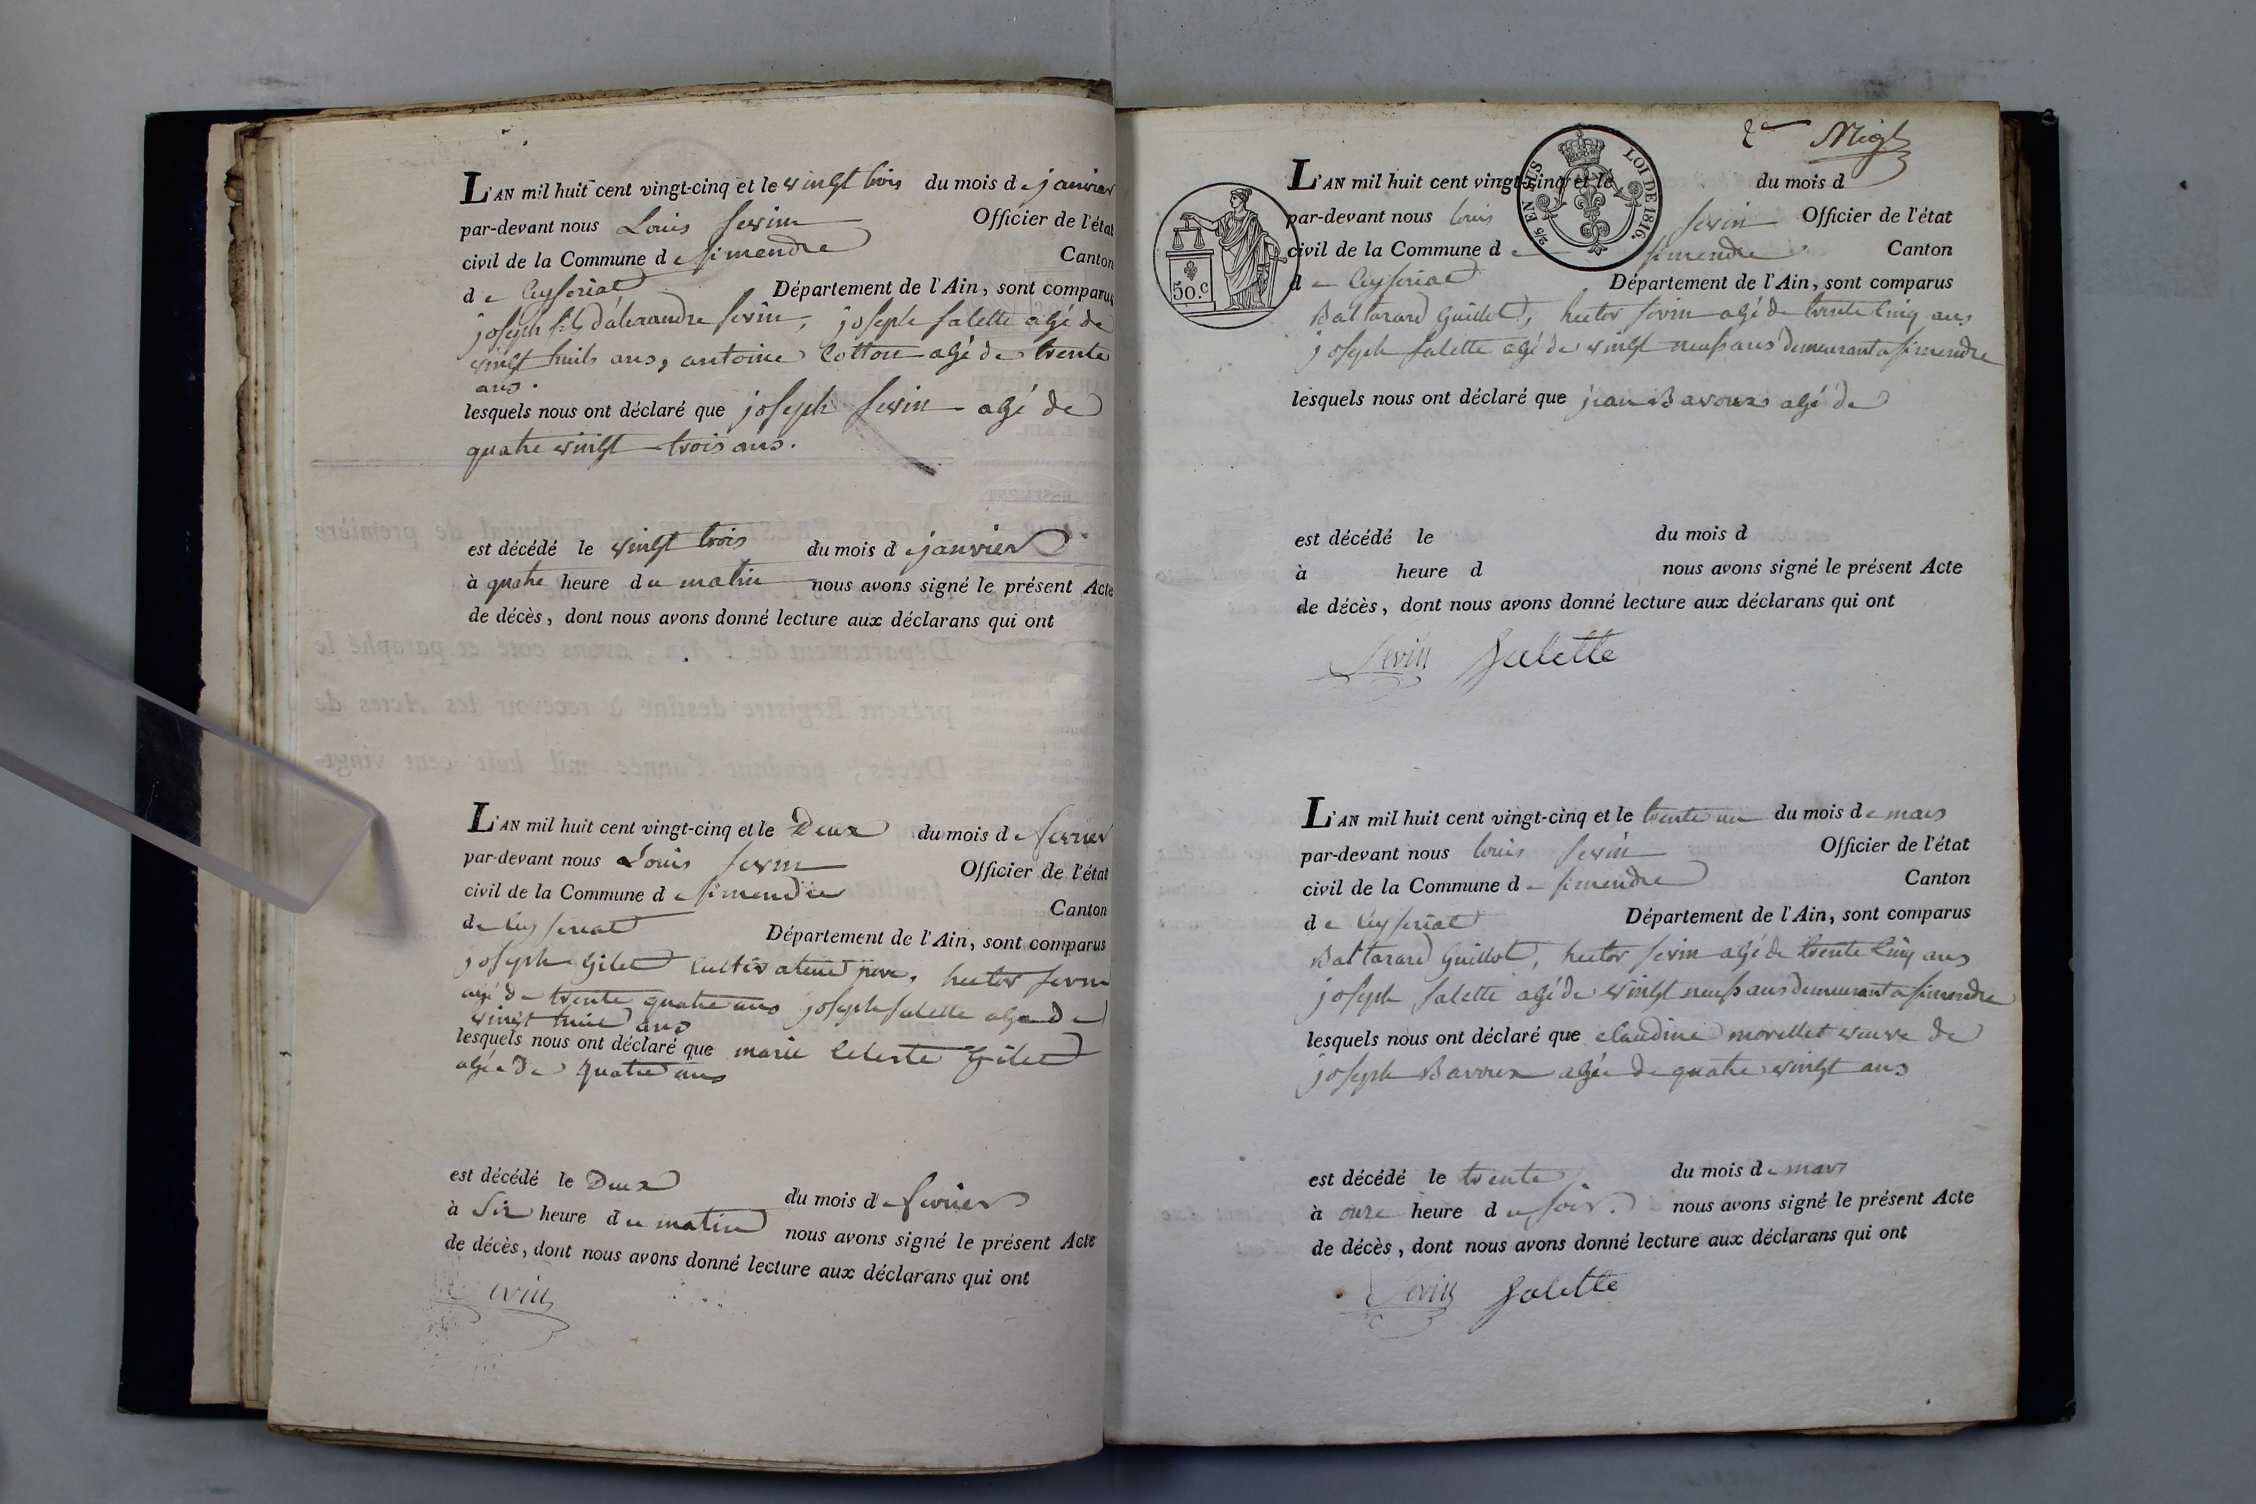 L'AN mil huit cent vingt-cinq et le vingt trois du mois de janvier
par-devant nous Louis sevin Officier de l'état
civil de la Commune de simendre Canton
de Ceyseriat Département de l'Ain, sont comparus
joseph d'alexandre sevin, joseph salette agé de
vingt huit ans, antoine Cotton agé de trente
ans.
lesquels nous ont déclaré que joseph sevin agé de
quatre vingt trois ans.
est décédé le vingt trois du mois de janvier
à quatre heure du matin nous avons signé le présent Acte
de décès, dont nous avons donné lecture aux déclarans qui ont
L'AN mil huit cent vingt-cinq et le Deux du mois de fevrier
par-devant nous Louis sevin Officier de l'état
civil de la Commune de simendre Canton
de Ceyseriat Département de l'Ain, sont comparus
joseph Gilet Cultivateur pere, hector sevin
agé de trente quatre ans joseph salette agé de
vingt ans
lesquels nous ont déclaré que marie Celeste Gilet
agée de quatre ans
est décédé le Deux du mois de fevrier
à Six heure du matin nous avons signé le présent Acte
de décès, dont nous avons donné lecture aux déclarans qui ont
Sevin
2e
L'AN mil huit cent vingt-cinq et le du mois d
EN SUS LOI DE 1816.
par-devant nous louis sevin Officier de l'état
civil de la Commune de simendre Canton
50.c
de Ceyseriat Département de l'Ain, sont comparus
Baltazard Guillot, hector sevin agé de trente Cinq ans
joseph salette agé de vingt neuf ans demeurant a simendre
lesquels nous ont déclaré que jean Bavoux agé de
est décédé le du mois d
à heure d nous avons signé le présent Acte
de décès, dont nous avons donné lecture aux déclarans qui ont
Sevin Salette
L'AN mil huit cent vingt-cinq et le trente un du mois de mars
par-devant nous louis sevin Officier de l'état
civil de la Commune de simendre Canton
de Ceyseriat Département de l'Ain, sont comparus
Baltazard Guillot, hector sevin agé de trente Cinq ans
joseph salette agé de vingt neuf ans demeurant a simendre
lesquels nous ont déclaré que claudine morellet veuve de
joseph Bavoux agée de quatre vingt ans
est décédé le trente du mois de mars
à onze heure du soir. nous avons signé le présent Acte
de décès, dont nous avons donné lecture aux déclarans qui ont
Sevin Salette